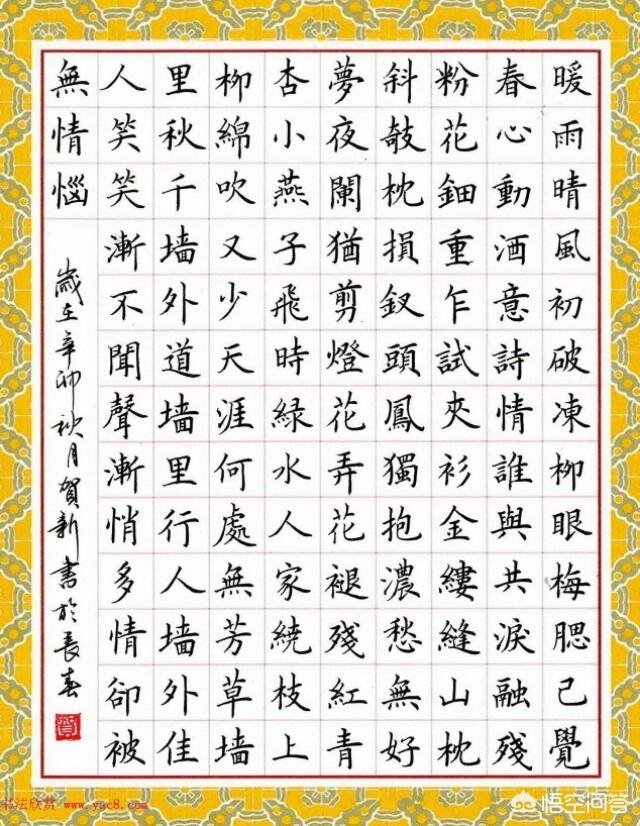 暖雨晴風初破凍柳眼梅腮已覺
春心動酒意詩情誰與共淚融殘
粉花鈿重乍試夾衫金縷縫山枕
斜攲枕損釵頭鳳獨抱濃愁無好
夢夜闌猶剪燈花弄花褪殘紅青
杏小燕子飛時緑水人家繞枝上
柳綿吹又少天涯何處無芳草墙
里秋千墙外道墙里行人墙外佳
人笑笑漸不聞聲漸悄多情卻被
無情惱
歲在辛卯秋月賀新書於長春
賀
书法欣赏 www.yac8.com
悟空问答